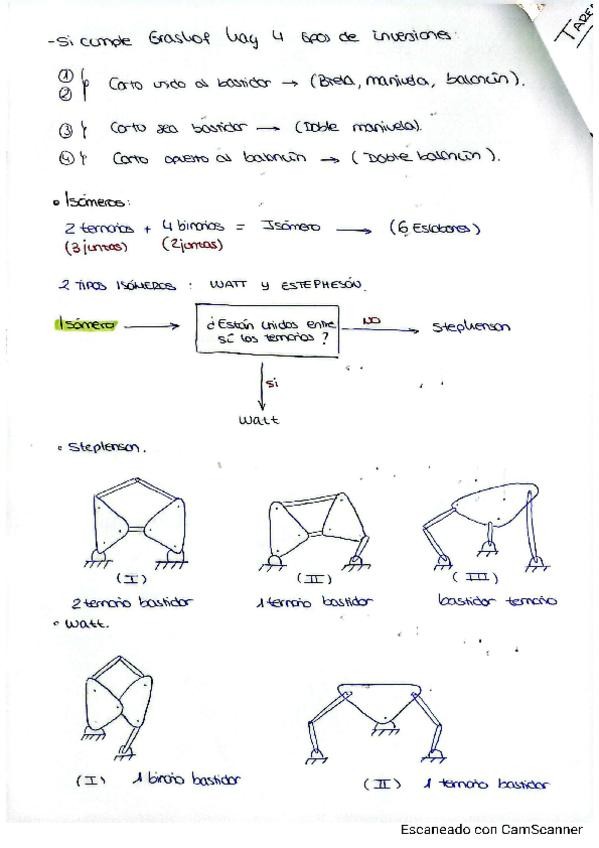 TAREA
-Si cumple Grashof hay 4 tipos de inversiones:
①
② Corto unido al bastidor → (Biela, manivela, balancín).
③ Corto sea bastidor → (Doble manivela).
④ Corto opuesto al balancín → (Doble balancín).
• Isómeros:
2 ternarios + 4 binarios = Isómero → (6 Eslabones)
(3 juntas) (2 juntas)
2 TIPOS ISÓMEROS: WATT y ESTEPHESÓN.
Isómero → ¿Están unidos entre sí los ternarios? NO → Stephenson
si
Watt
• Stephenson.
(I) (II) (III)
2 ternario bastidor 1 ternario bastidor bastidor ternario
• Watt.
(I) 1 binario bastidor (II) 1 ternario bastidor
Escaneado con CamScanner